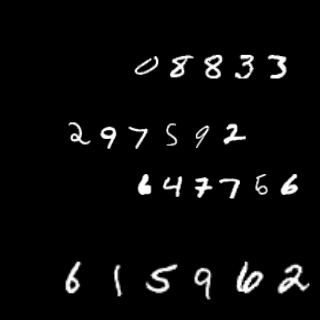 08833
297592
647756
615962